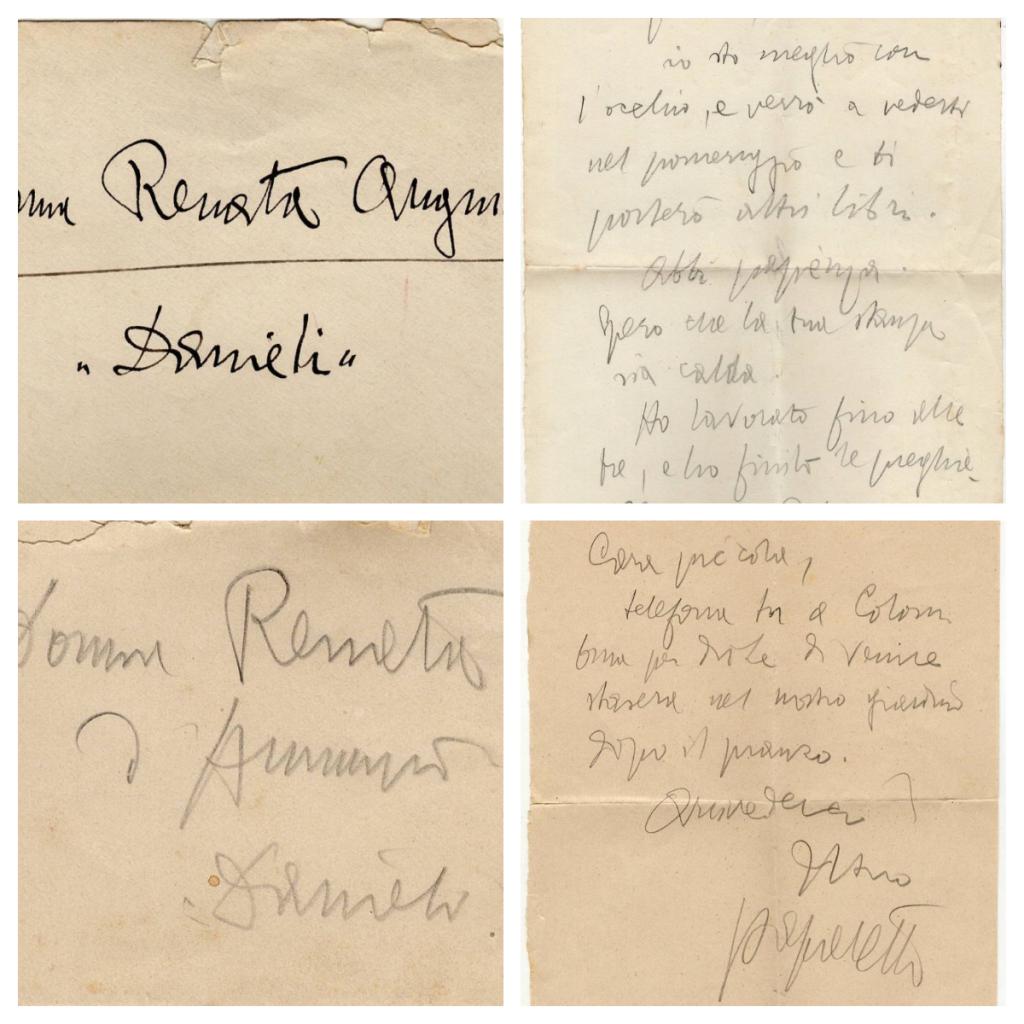 Renata
"Danieli"
io sto meglio con
l'occhio, e verrò a vederti
nel pomeriggio e ti
porterò altri libri.
Abbi pazienza.
Spero che la tua stanza
sia calda.
Ho lavorato fino alle
tre, e ho finito le preghie-
Donna Renata
d'Annunzio
Danieli
Cara piccola,
telefona tu a Colom
bina per di di venire
stasera nel nostro giardino
dopo il pranzo.
Arrivederci
Il tuo
papaletto